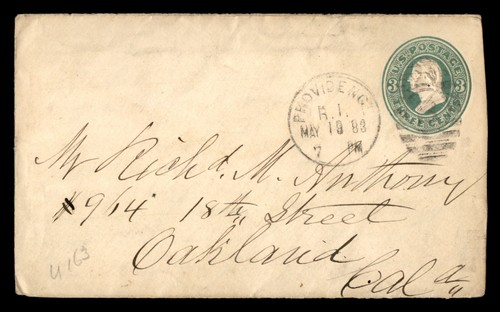 U.S. POSTAGE
3 3
THREE CENTS
PROVIDENCE
R.I.
MAY 18 83
7 PM
Mr Richd. M. Anthony
#964 18th Street
Oakland
Cala
U163